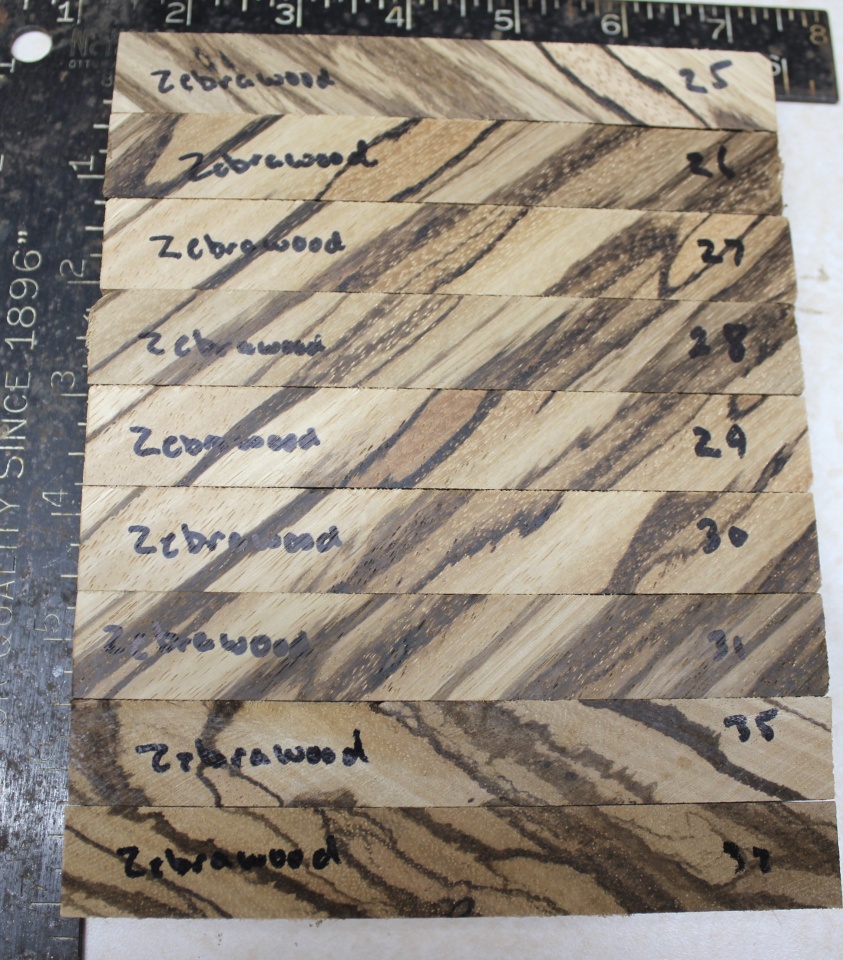 1 2 3 4 5 6 7 8
Zebrawood 25
Zebrawood 26
Zebrawood 27
Zebrawood 28
Zebrawood 29
Zebrawood 30
Zebrawood 31
Zebrawood 35
Zebrawood 37
1 2 3 4 5
QUALITY SINCE 1896"